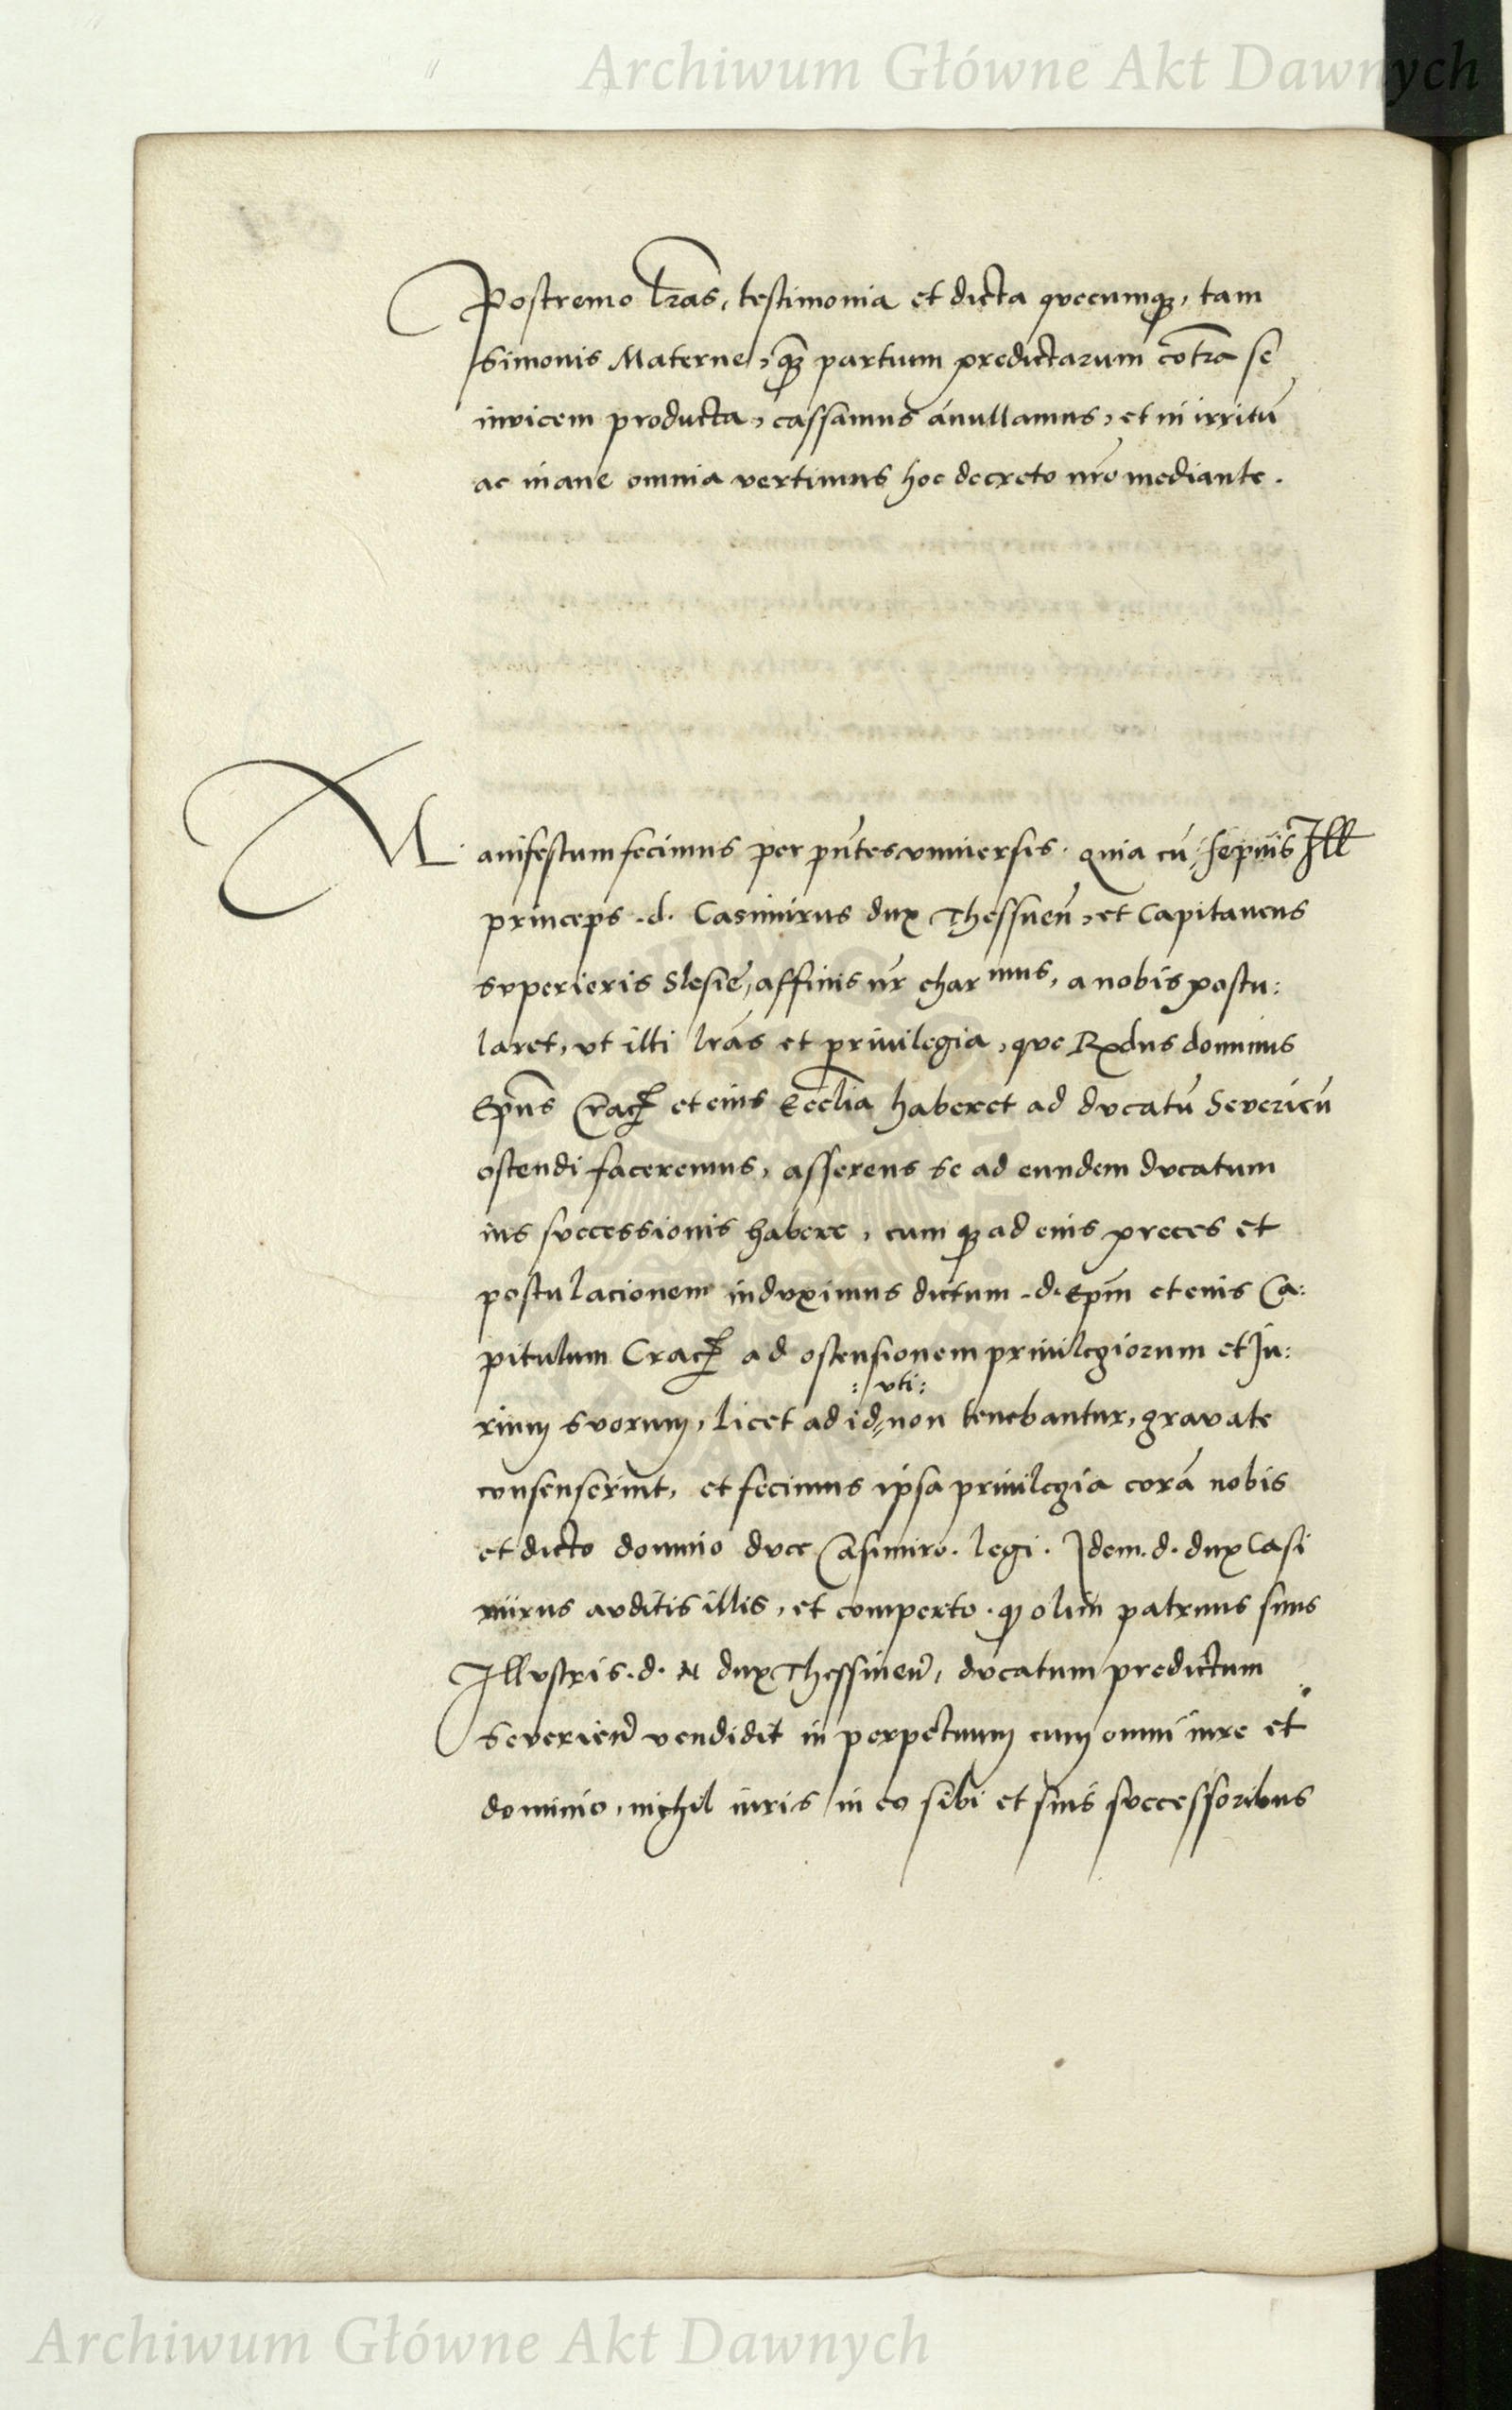 Archiwum Główne Akt Dawnych
Postremo lr̃as, testimonia et dicta quecumqȝ, tam
Simonis Materne, qȝ partium predictarum cõtra se
invicem producta, cassamus ánullamus, et in irritũ
ac inane omnia vertimus hoc decreto nr̃o mediante.
Manifestum fecimus per pñtes vniversis. quia cũ sepius Ill
princeps .d. Casimirus dux Thessneñ, et Capitaneus
superioris Slesie, affinis nr̃ char mus, a nobis postu:
laret, vt illi lrãs et privilegia, que Rx̃dus dominus
Ep̃us Crac̃ et eius Ecclĩa haberet ad ducatũ Severieñ
ostendi faceremus, asserens se ad eundem ducatum
ius successionis habere, cum qȝ ad eius preces et
postulacionem induximus dictum .d. Ep̃m et eius Ca:
pitulum Crac̃ ad ostensionem privilegiorum et Ju:
:vti:
rium suorum, licet ad id non tenebantur, gravate
consenserint, et fecimus ipsa privilegia corã nobis
et dicto domino duce Casimiro. legi. Idem .d. dux Casi
mirus auditis illis, et comperto. qȝ olim patruus suus
Illustris .d. N dux Thessineñ, ducatum predictum
Severieñ vendidit in perpetuum cum omni iure et
dominio, nichil iuris in eo sibi et suis successoribus
Archiwum Główne Akt Dawnych